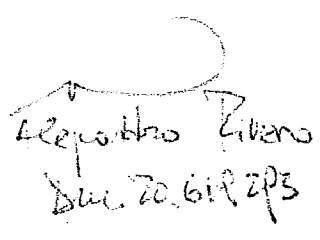 Alejandro Rivero
Dni. 20.619.293